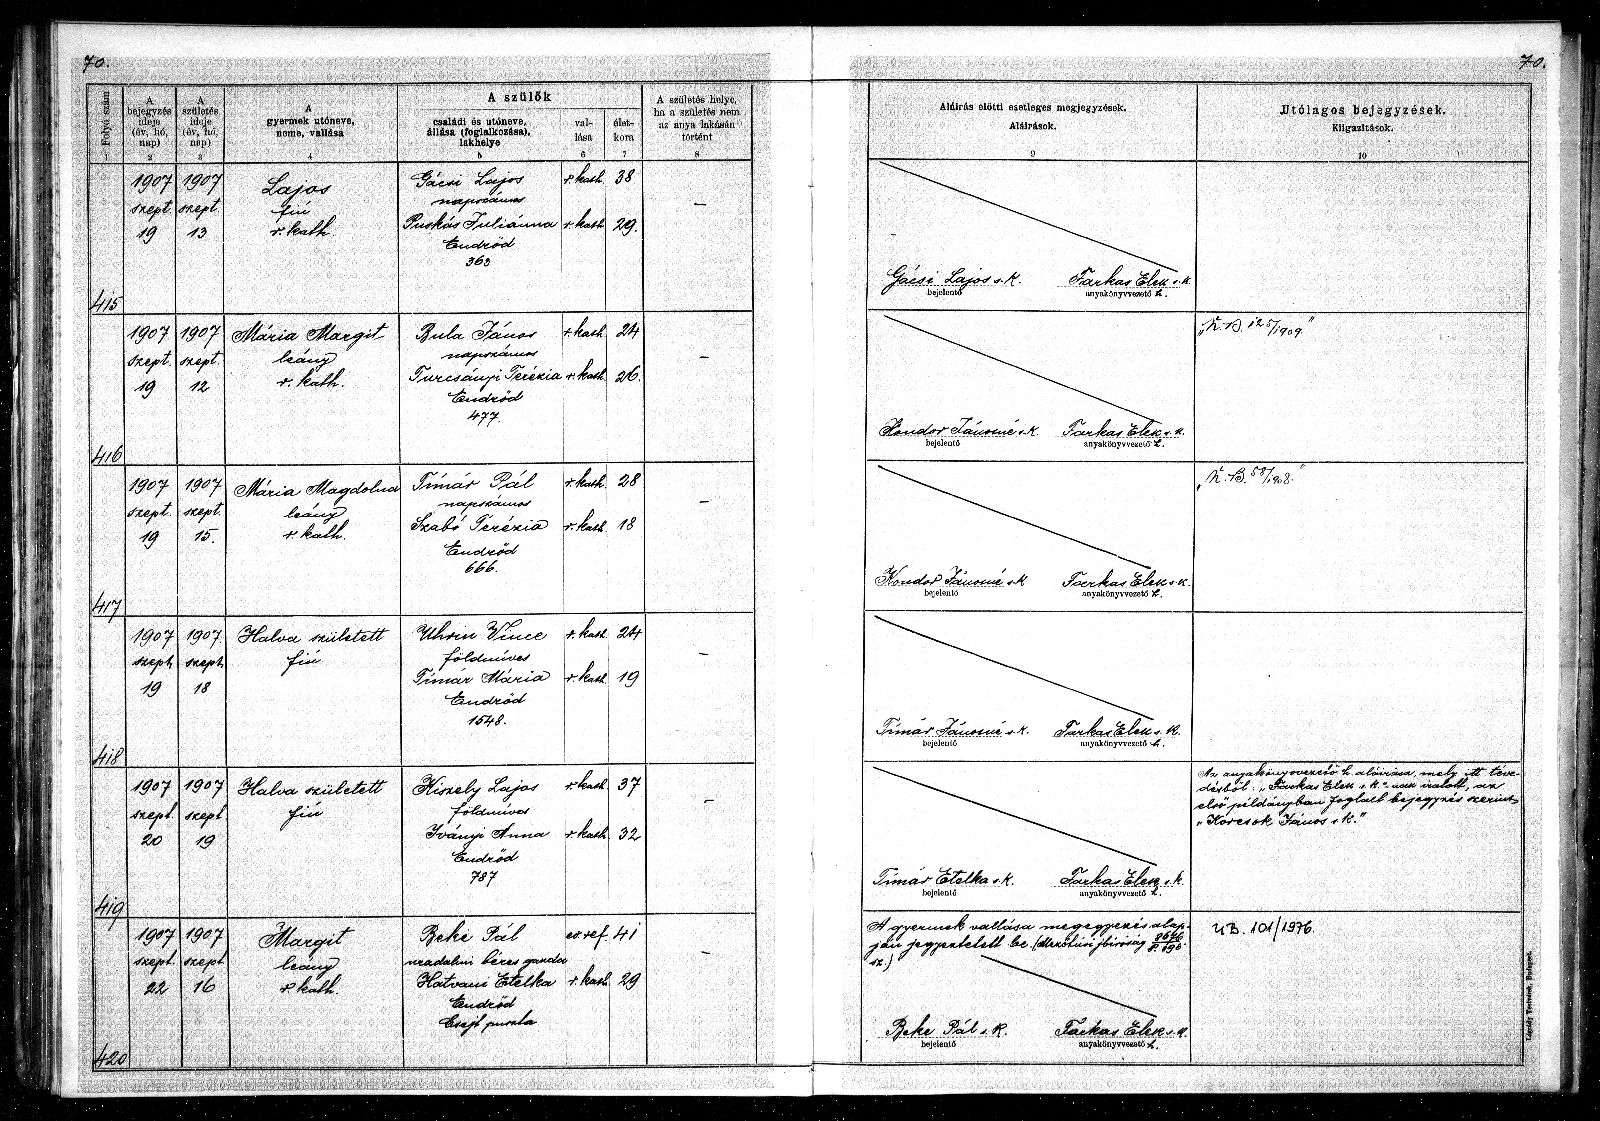 70.
70.
Folyó szám
A bejegyzés ideje (év, hó, nap)
A születés ideje (év, hó, nap)
A gyermek utóneve, neme, vallása
A szülők
családi és utóneve, állása (foglalkozása), lakhelye
vallása
életkora
A születés helye, ha a születés nem az anya lakásán történt
Aláírás előtti esetleges megjegyzések.
Aláírások.
Utólagos bejegyzések.
Kiigazítások.
1 2 3 4 5 6 7 8 9 10
415
1907 szept. 19
1907 szept. 13
Lajos
fiú
r. kath.
Gácsi Lajos r. kath. 38
napszámos
Puskás Juliánna r. kath. 29.
Endrőd
363
—
Gácsi Lajos s. k. Farkas Elek s. k.
bejelentő anyakönyvvezető h.
416
1907 szept. 19
1907 szept. 12
Mária Margit
leány
r. kath.
Bula János r. kath. 24
napszámos
Turcsányi Terézia r. kath. 26.
Endrőd
477.
—
Kondor Jánosné s. k. Farkas Elek s. k.
bejelentő anyakönyvvezető h.
417
1907 szept. 19
1907 szept. 15.
Mária Magdolna
leány
r. kath.
Tímár Pál r. kath. 28
napszámos
Szabó Terézia r. kath. 18
Endrőd
666.
—
Kondor Jánosné s. k. Farkas Elek s. k.
bejelentő anyakönyvvezető h.
418
1907 szept. 19
1907 szept. 18
Halva született
fiú
Uhrin Vince r. kath. 24
földmíves
Tímár Mária r. kath. 19
Endrőd
1548.
—
Tímár Jánosné s. k. Farkas Elek s. k.
bejelentő anyakönyvvezető h.
419
1907 szept. 20
1907 szept. 19
Halva született
fiú
Kiszely Lajos r. kath. 37
földmíves
Iványi Anna r. kath. 32
Endrőd
787
—
Tímár Etelka s. k. Farkas Elek s. k.
bejelentő anyakönyvvezető h.
Az anyakönyvvezető h. aláírása, mely itt téve-
désből „Farkas Elek s. k."-nak iratott, az
első példányban foglalt bejegyzés szerint
„Korcsok János s. k."
420
1907 szept. 22
1907 szept. 16
Margit
leány
r. kath.
Beke Pál ev. ref. 41
uradalmi béres gazda
Hatvani Etelka r. kath. 29
Endrőd
Csejt puszta
—
A gyermek vallása megegyezés alap-
ján jegyeztetett be.
sz.)
Beke Pál s. k. Farkas Elek s. k.
bejelentő anyakönyvvezető h.
UB. 101/1976.
Légrády Testvérek, Budapest.